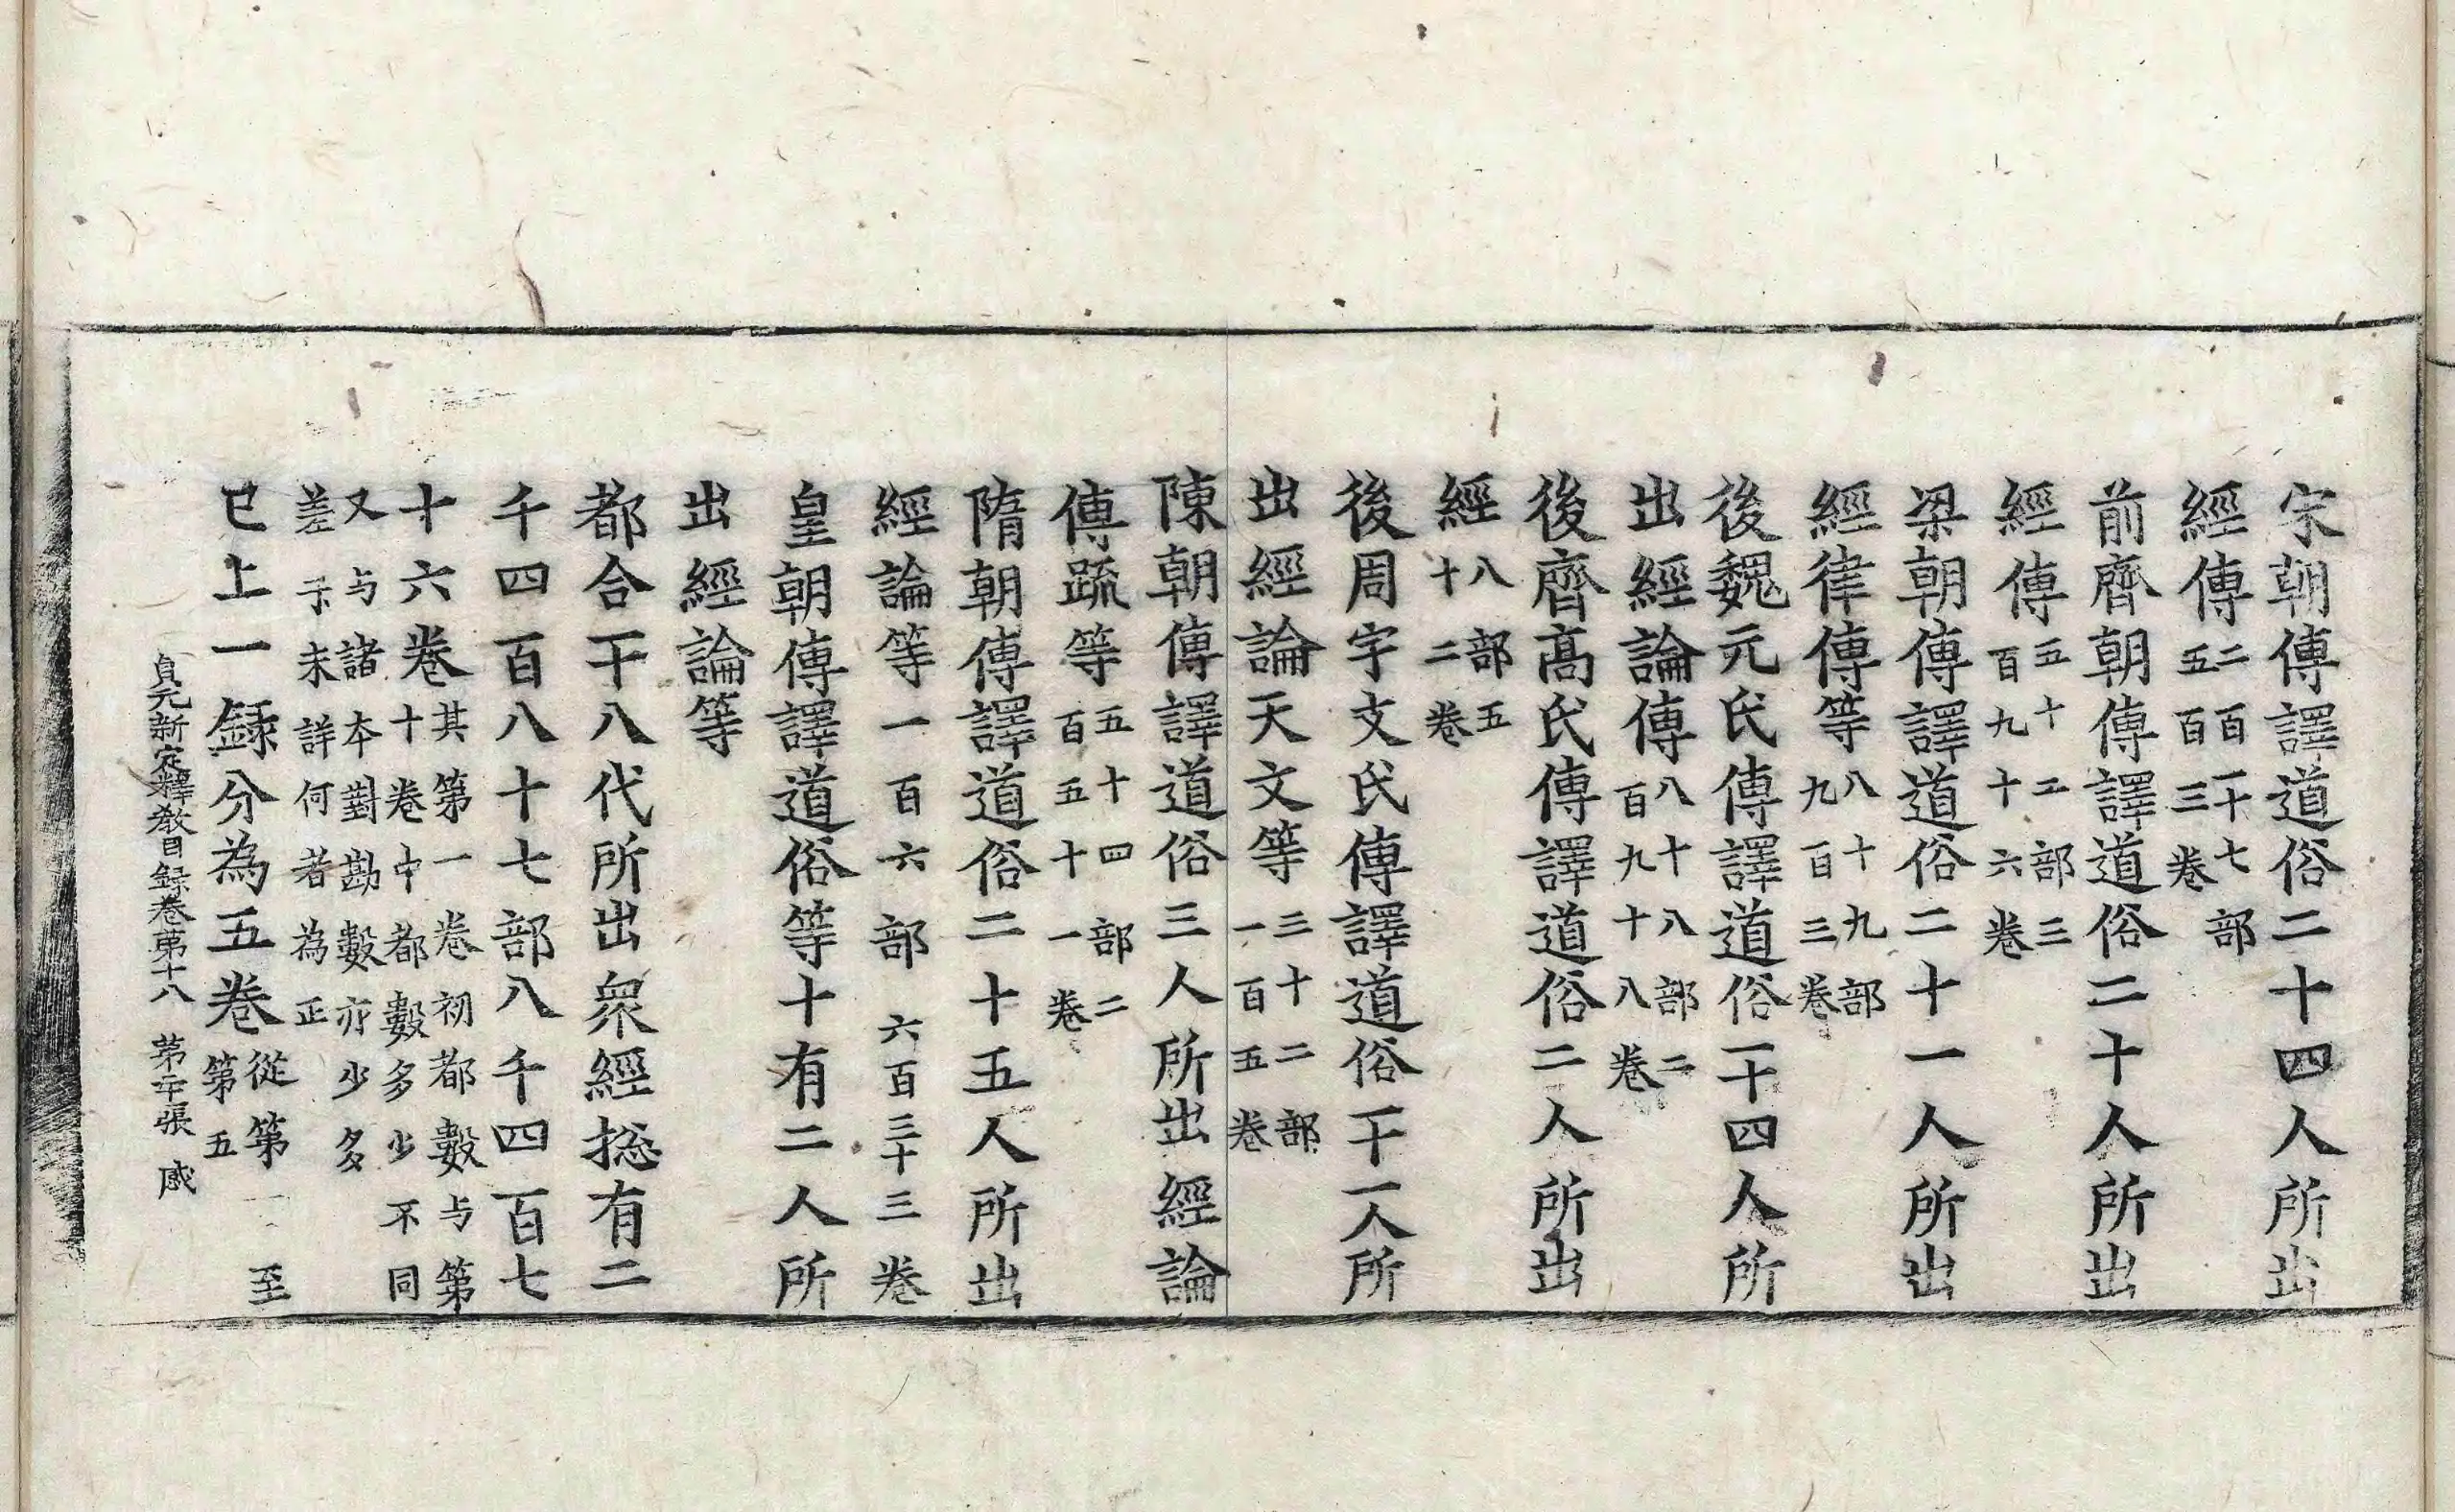 宋朝傳譯道俗二十四人所出
經傳二百一十七部
五百三卷
前齊朝傳譯道俗二十人所出
經傳五十工部三
百九十六卷
梁朝傳譯道俗二十一人所出
經律傳等八十九部
九百三卷
後魏元氏傳譯道俗一十四人所
出經論傳八十八部二
百九十八卷
後齊髙氏傳譯道俗二人所出
經八部五
十二卷
後周宇文氏傳譯道俗一十一人所
出經論天文等三十二部
一百五卷
陳朝傳譯道俗三人所出經論
傳疏等五十四部二
百五十一卷
隋朝傳譯道俗二十五人所出
經論等一百六部六百三十三卷
皇朝傳譯道俗等十有二人所
出經論等
都合一十八代所出衆經捴有二
千四百八十七部八千四百七
十六卷其第一卷初都數与第
十卷中都數多少不同
又与諸本對勘數亦少多
差未詳何者為正
已上一録分為五卷從第一至
第五
貞元新定釋教目録卷第十八 第張 感